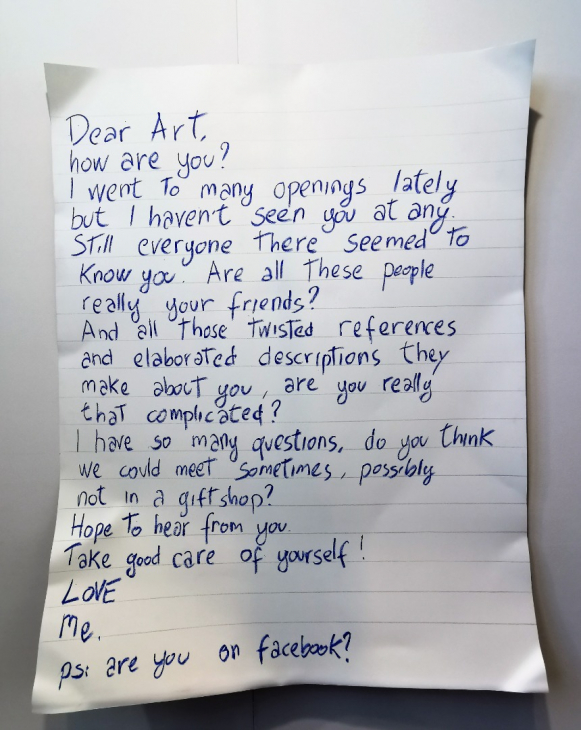 Dear Art,
how are you?
I went to many openings lately
but I haven't seen you at any.
Still everyone there seemed to
know you. Are all these people
really your friends?
And all those twisted references
and elaborated descriptions they
make about you, are you really
that complicated?
I have so many questions, do you think
we could meet sometimes, possibly
not in a giftshop?
Hope to hear from you.
Take good care of yourself!
LOVE
Me.
ps: are you on facebook?